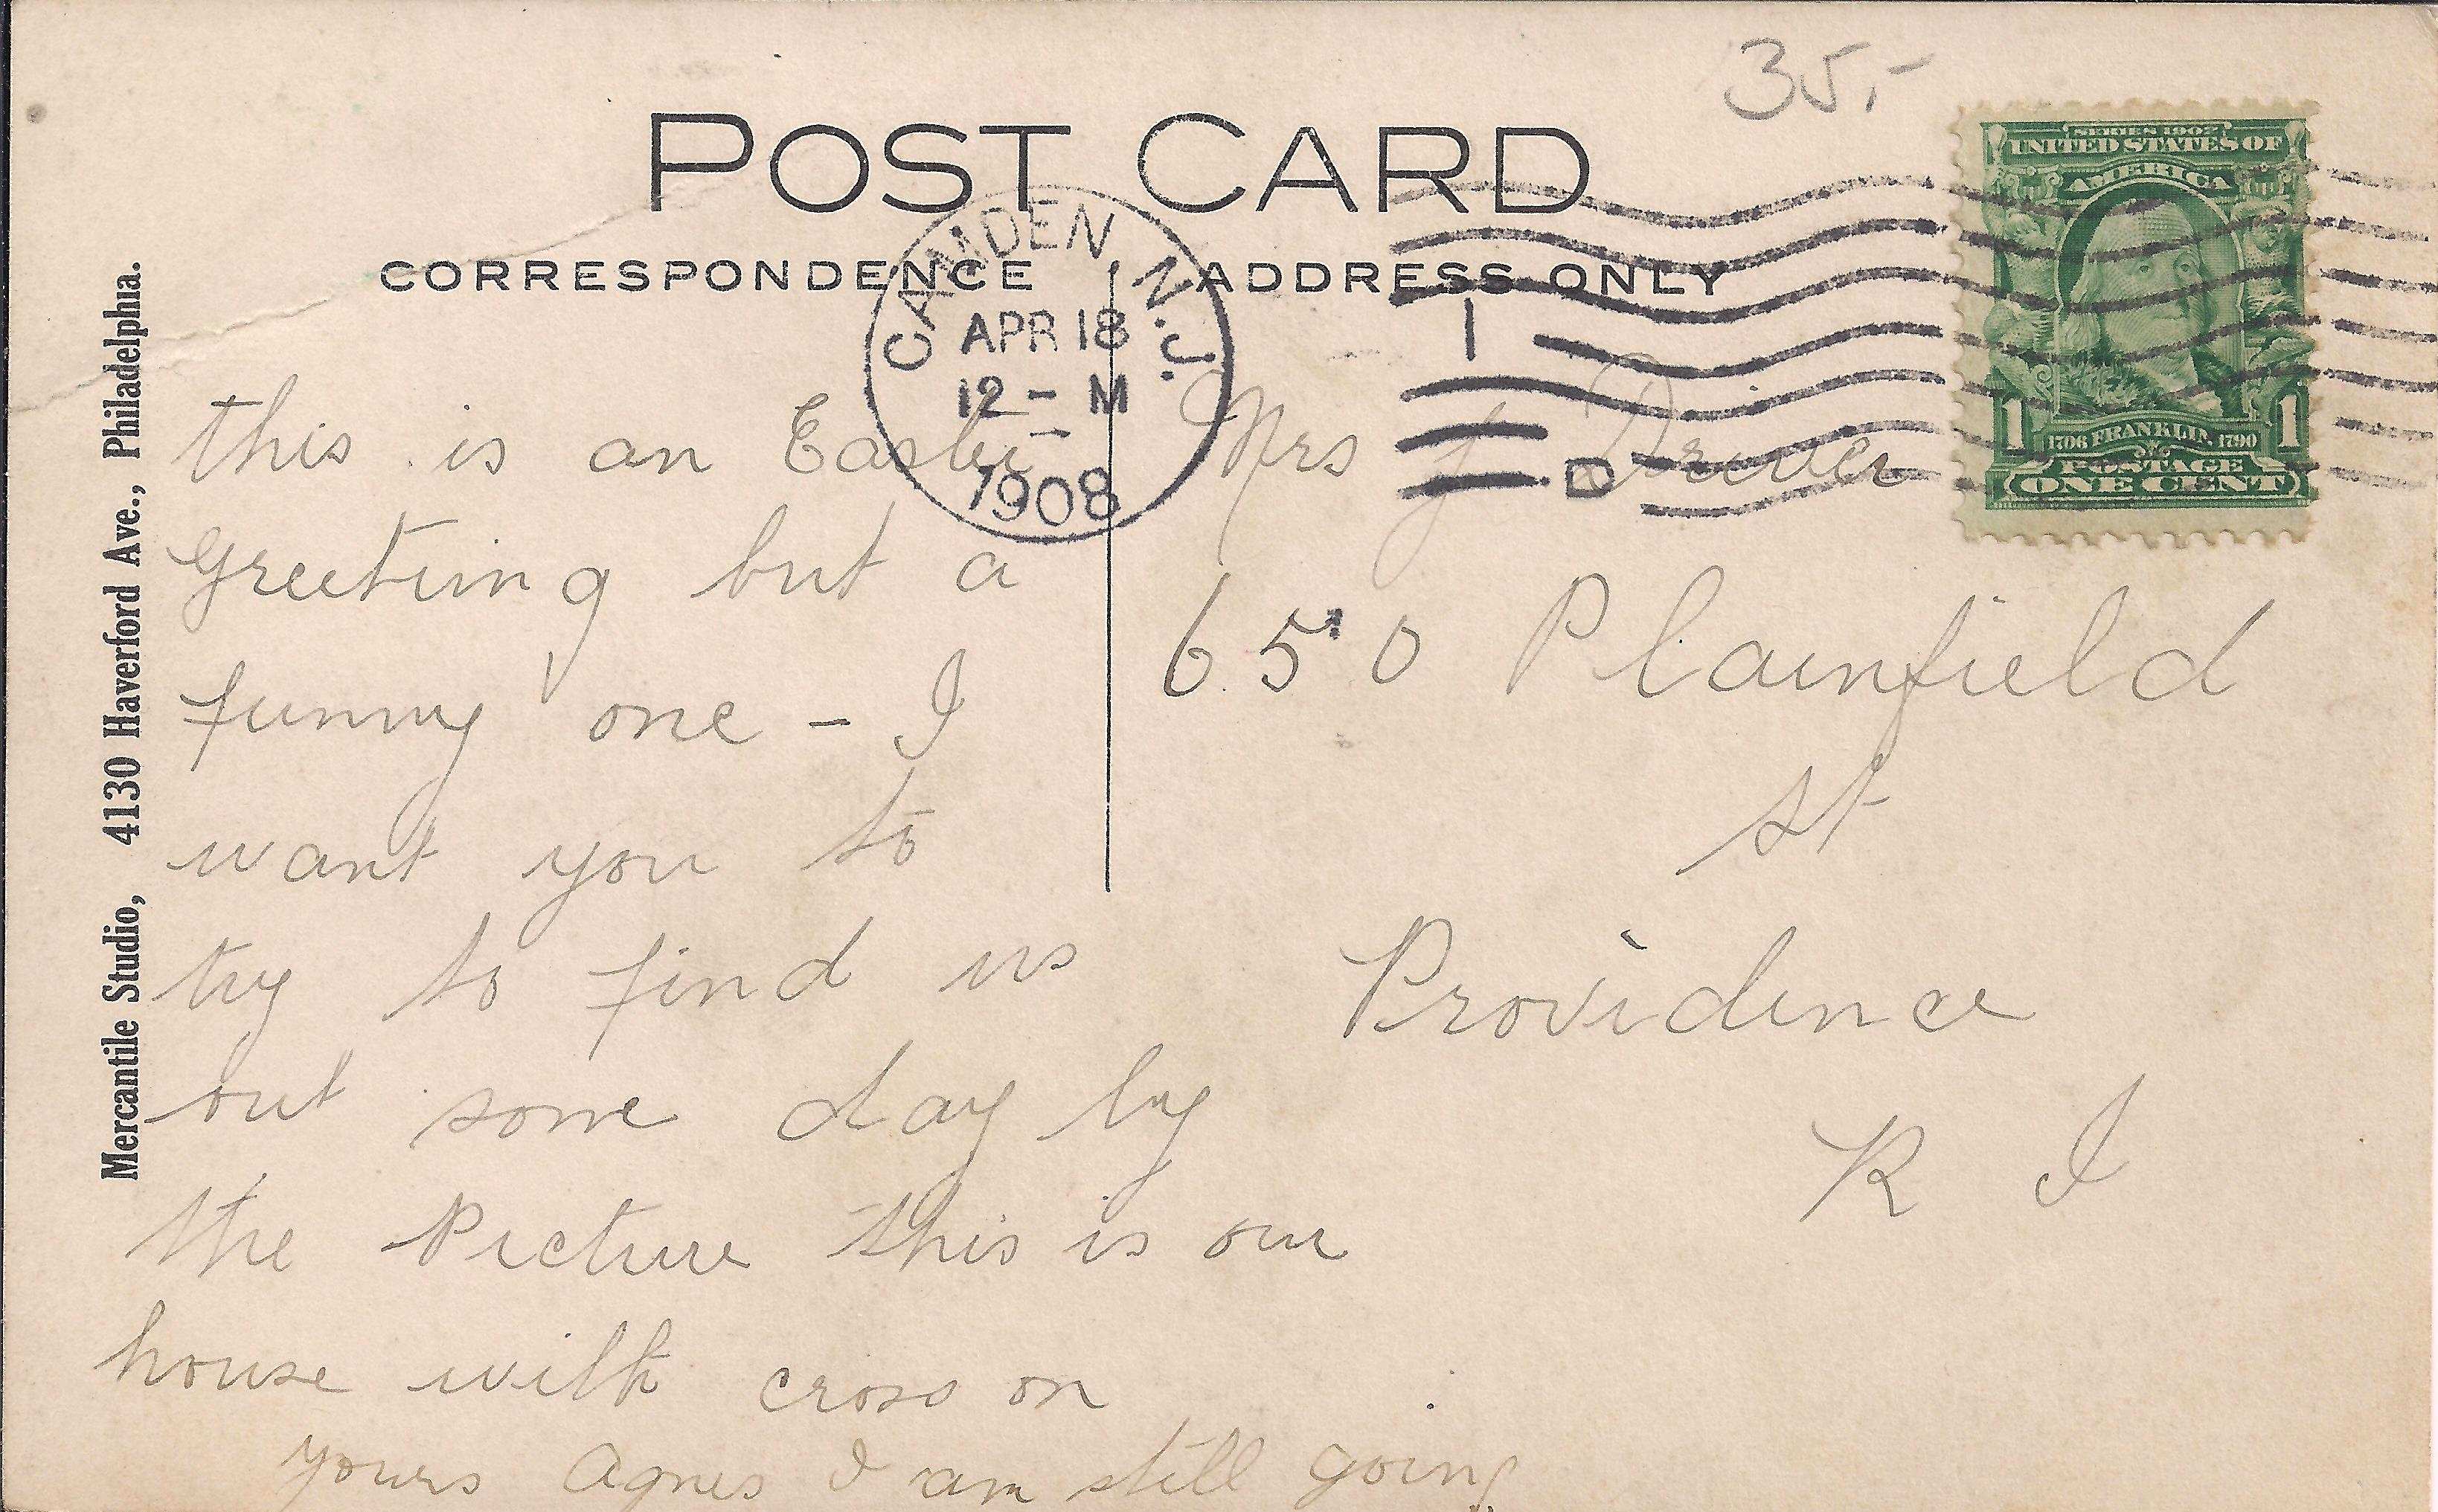 35.-
POST CARD
CORRESPONDENCE
ADDRESS ONLY
Mercantile Studio, 4130 Haverford Ave., Philadelphia.
CAMDEN, N.J.
APR 18
12 - M
1908
1
D
SERIES 1902
UNITED STATES OF
AMERICA
1 1
1706 FRANKLIN 1790
POSTAGE
ONE CENT
this is an Easter
greeting but a
funny one - I
want you to
try to find us
out some day by
the Picture this is our
house with cross on
yours Agnes I am still going
Mrs J Driver
650 Plainfield
st
Providence
R I